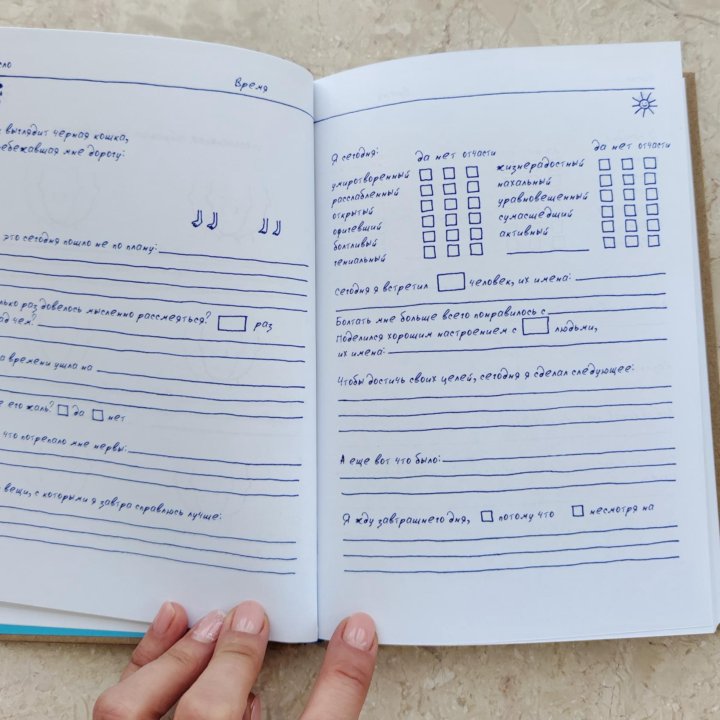 Время
выглядит черная кошка,
мне дорогу:
это сегодня пошло не по плану:
раз довелось мысленно рассмеяться? раз
чем?
времени ушла на
его жаль? да нет
что потрепало мне нервы:
вещи, с которыми я завтра справлюсь лучше:
Я сегодня: да нет отчасти
умиротворенный
расслабленный
открытый
офигевший
болтливый
гениальный
да нет отчасти
жизнерадостный
нахальный
уравновешенный
сумасшедший
активный
сегодня я встретил человек, их имена:
Болтать мне больше всего понравилось с
Поделился хорошим настроением с людьми,
их имена:
Чтобы достичь своих целей, сегодня я сделал следующее:
А еще вот что было:
Я жду завтрашнего дня, потому что несмотря на